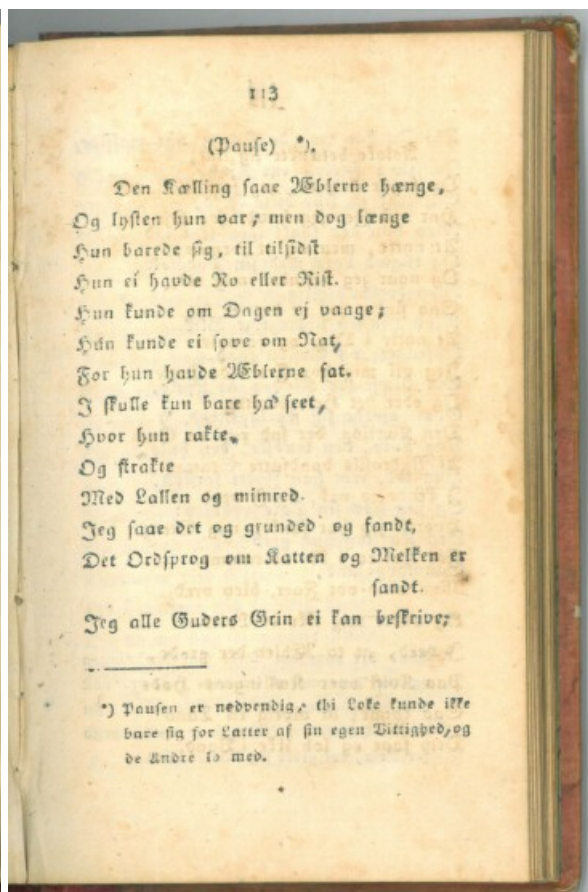 113
(Pause) *).
Den Kælling saae Æblerne hænge,
Og lysten hun var; men dog længe
Hun barede sig, til tilsidst
Hun ei havde Ro eller Rist.
Hun kunde om Dagen ej vaage;
Hun kunde ei sove om Nat,
For hun havde Æblerne fat.
I skulle kun bare ha' seet,
Hvor hun rakte,
Og strakte
Med Lallen og mimred.
Jeg saae det og grunded og fandt,
Det Ordsprog om Katten og Melken er
sandt.
Jeg alle Guders Grin ei kan beskrive;
*) Pausen er nødvendig, thi Loke kunde ikke
bare sig for Latter af sin egen Vittighed, og
de Andre lo med.